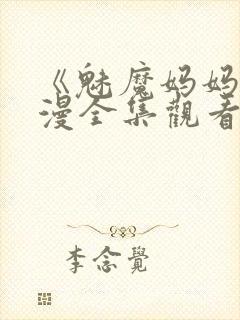 《魅魔妈妈
漫全集觀看
李念覺